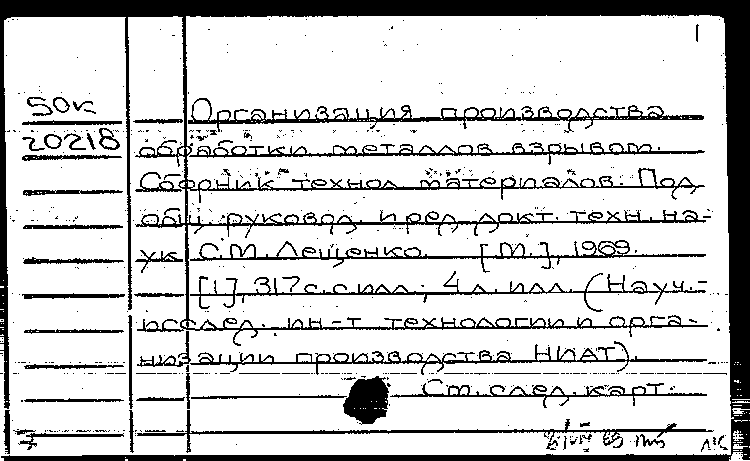 1
50к
20218
Организация производства
обработки металлов взрывом.
Сборник технол материалов. Под
общ. руковод. и ред. докт. техн. на-
ук С.М. Лещенко. [М.], 1969.
[1], 317 с. с илл.; 4 л. илл. (Науч.-
исслед. ин-т технологии и орга-
низации производства НИАТ).
См. след. карт.
7
69